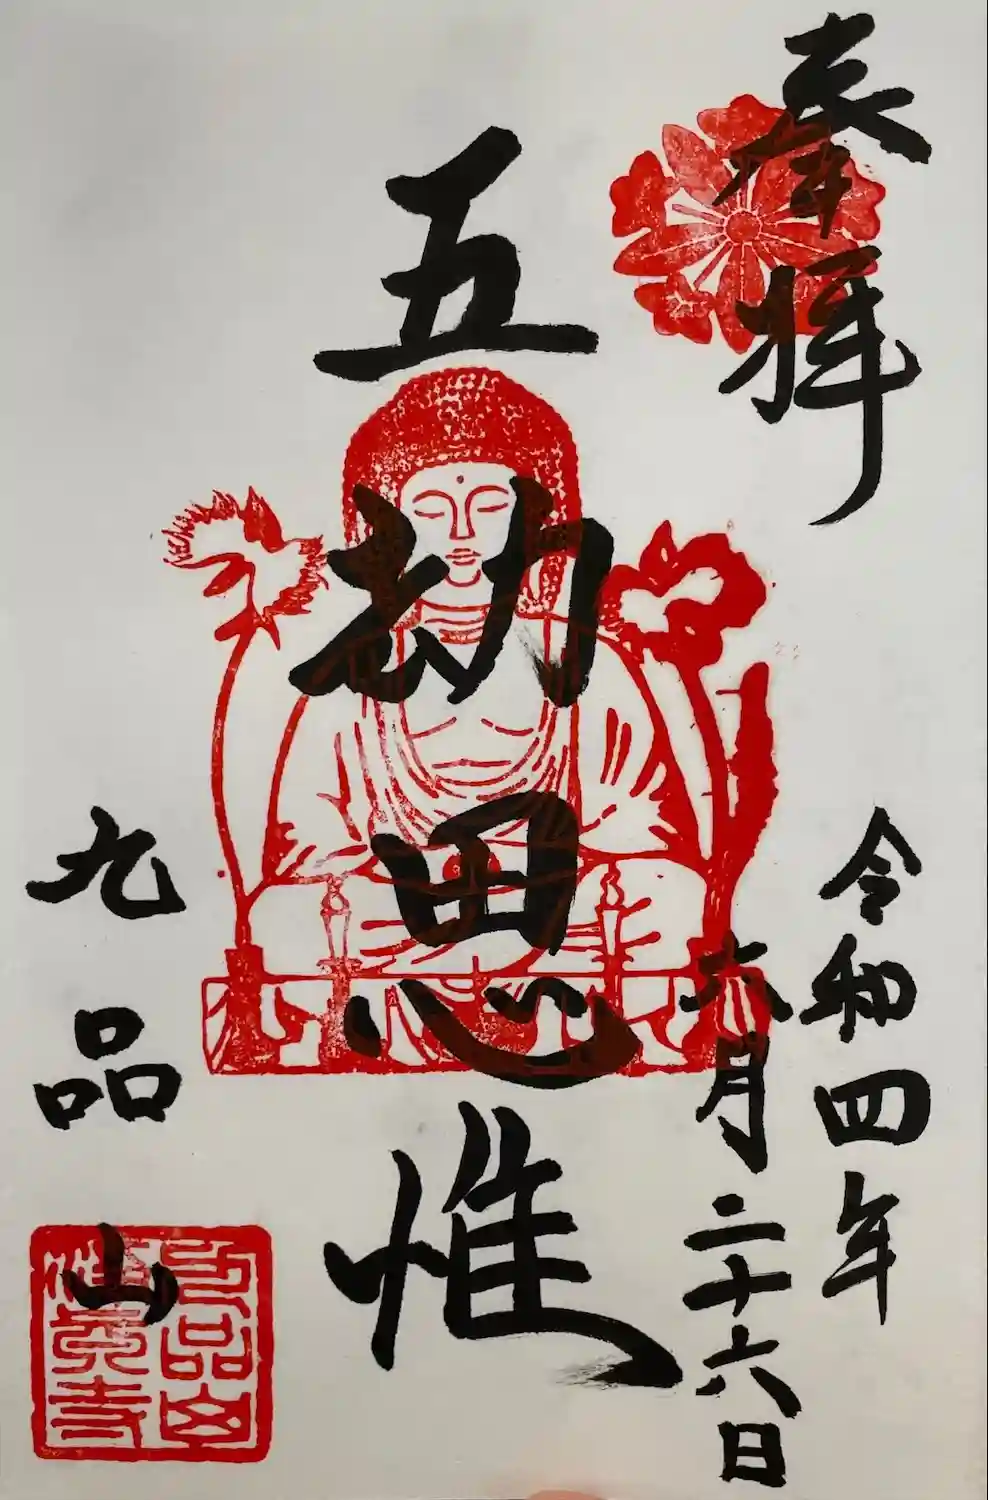 奉拝
令和四年
六月二十六日
五劫思惟
九品山
九品山
淨真寺